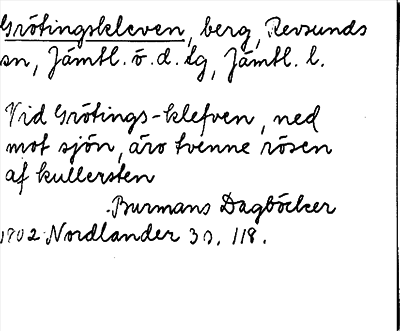 Grötingskleven, berg, Revsunds
sn, Jämtl. ö. d. lg, Jämtl. l.
Vid Grötings-klefven, ned
mot sjön, äro tvenne rösen
af kullersten
Burmans Dagböcker
1902 Nordlander 30. 118.